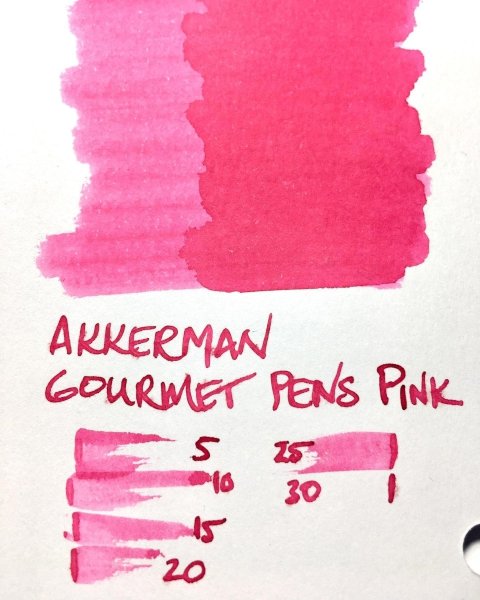 AKKERMAN
GOURMET PENS PINK
5
10
15
20
25
30